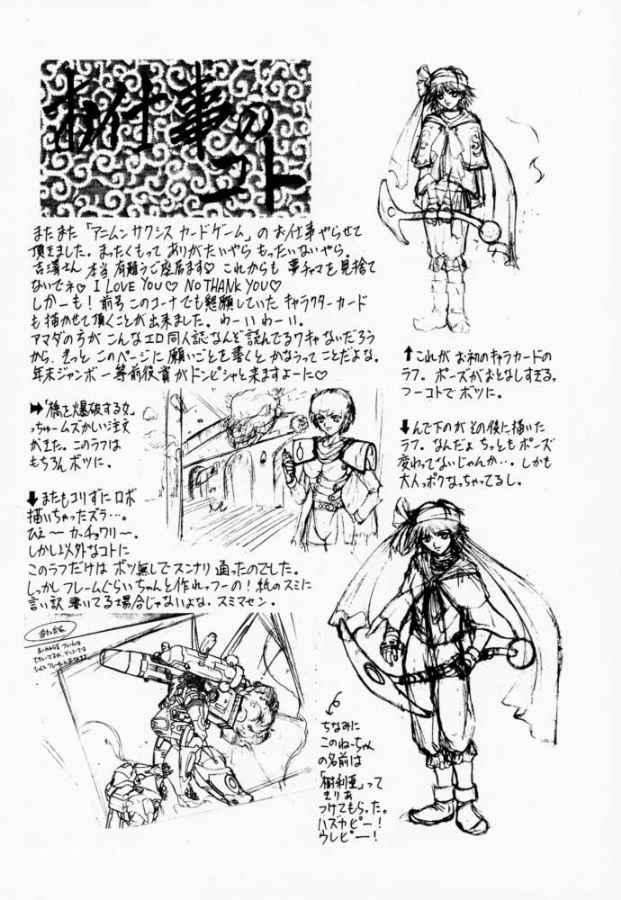 お仕事の
コト
またまた「アニムンサクシス カードゲーム」の お仕事 やらせて
頂きました。まったくもって ありがたいやら もったいないやら。
吉濱さん 本当 有難うご座居ます♡ これからも 事チャマを 見捨て
ないでネ♡ I LOVE YOU♡ NO THANK YOU♡
しかーも！前号 このコーナでも 懇願していた キャラクターカード
も 描かせて頂くことが 出来ました。わーい わーい。
アマダの方が こんなエロ同人誌なんど 読んでるワキャ ないだろう
から、きっと このページに 願いごとを書くと かなうって ことだよな。
年末ジャンボ 一等前後賞が ドンピシャと来ますよーに♡
➡「橋を爆破する女」
っちゅームズかしい注文
がきた。このラフは
もちろん ボツに。
⬇またもコリずに ロボ
描いちゃったズラ…。
ひぇ〜 カッチョワリ〜。
しかし以外なコトに
このラフだけは ボツ無しで スンナリ 通ったのでした。
しっかしフレームぐらいちゃんと作れっフーの！紙のスミに
言い訳 書いてる場合じゃないよな。スミマセン。
⬆これが お初のキャラカードの
ラフ。ポーズがおとなしすぎる。
フーコトで ボツに。
⬇んで下のが その後に描いた
ラフ。なんだよ ちっともポーズ
変わってないじゃんか…。しかも
大人ッポクなっちゃってるし。
ちなみに
このねーちゃん
の名前は
「樹利亜」って
きりあ
つけてもらった。
ハズカピー！
ウレピー！